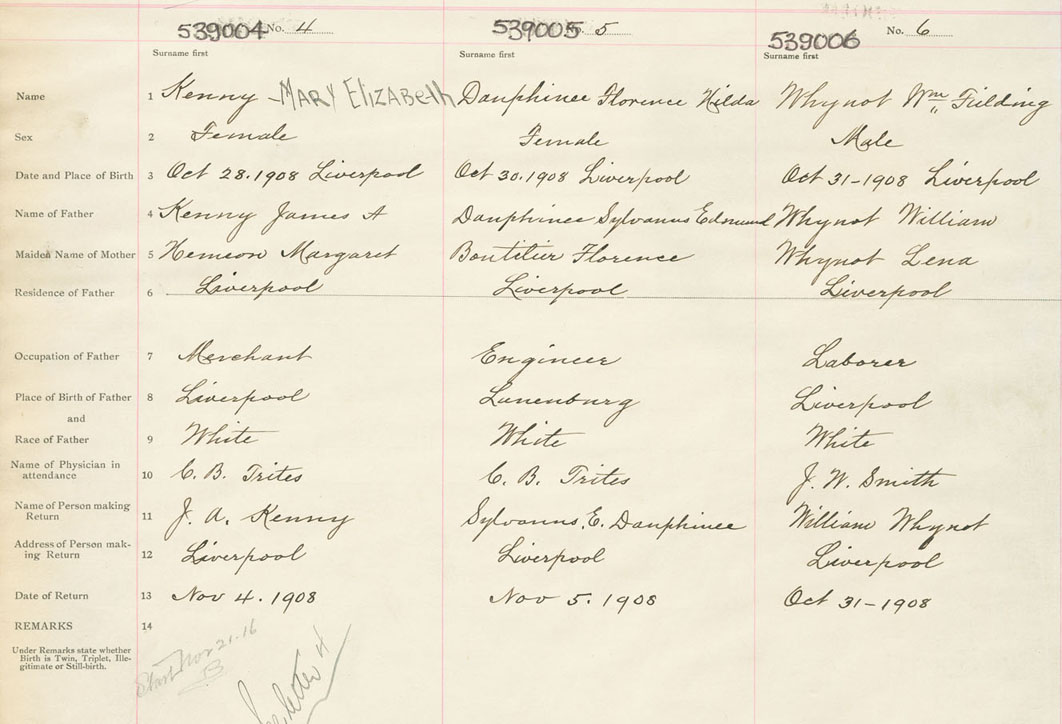 539004 No. 4 539005 5 539006 No. 6
Surname first Surname first Surname first
Name 1 Kenny - MARY ElizABeth Dauphinee Florence Hilda Whynot Wm Fielding
Sex 2 Female Female Male
Date and Place of Birth 3 Oct 28.1908 Liverpool Oct 30.1908 Liverpool Oct 31-1908 Liverpool
Name of Father 4 Kenny James A Dauphinee Sylvanus Edmund Whynot William
Maiden Name of Mother 5 Hemeon Margaret Boutilier Florence Whynot Lena
Residence of Father 6 Liverpool Liverpool Liverpool
Occupation of Father 7 Merchant Engineer Laborer
Place of Birth of Father 8 Liverpool Lunenburg Liverpool
and
Race of Father 9 White White White
Name of Physician in
attendance 10 C. B. Trites C. B. Trites J. W. Smith
Name of Person making
Return 11 J. A. Kenny Sylvanus. E. Dauphinee William Whynot
Address of Person mak-
ing Return 12 Liverpool Liverpool Liverpool
Date of Return 13 Nov 4. 1908 Nov 5. 1908 Oct 31-1908
REMARKS 14
Under Remarks state whether
Birth is Twin, Triplet, Ille-
gitimate or Still-birth.
Nov 21-16
B
letter